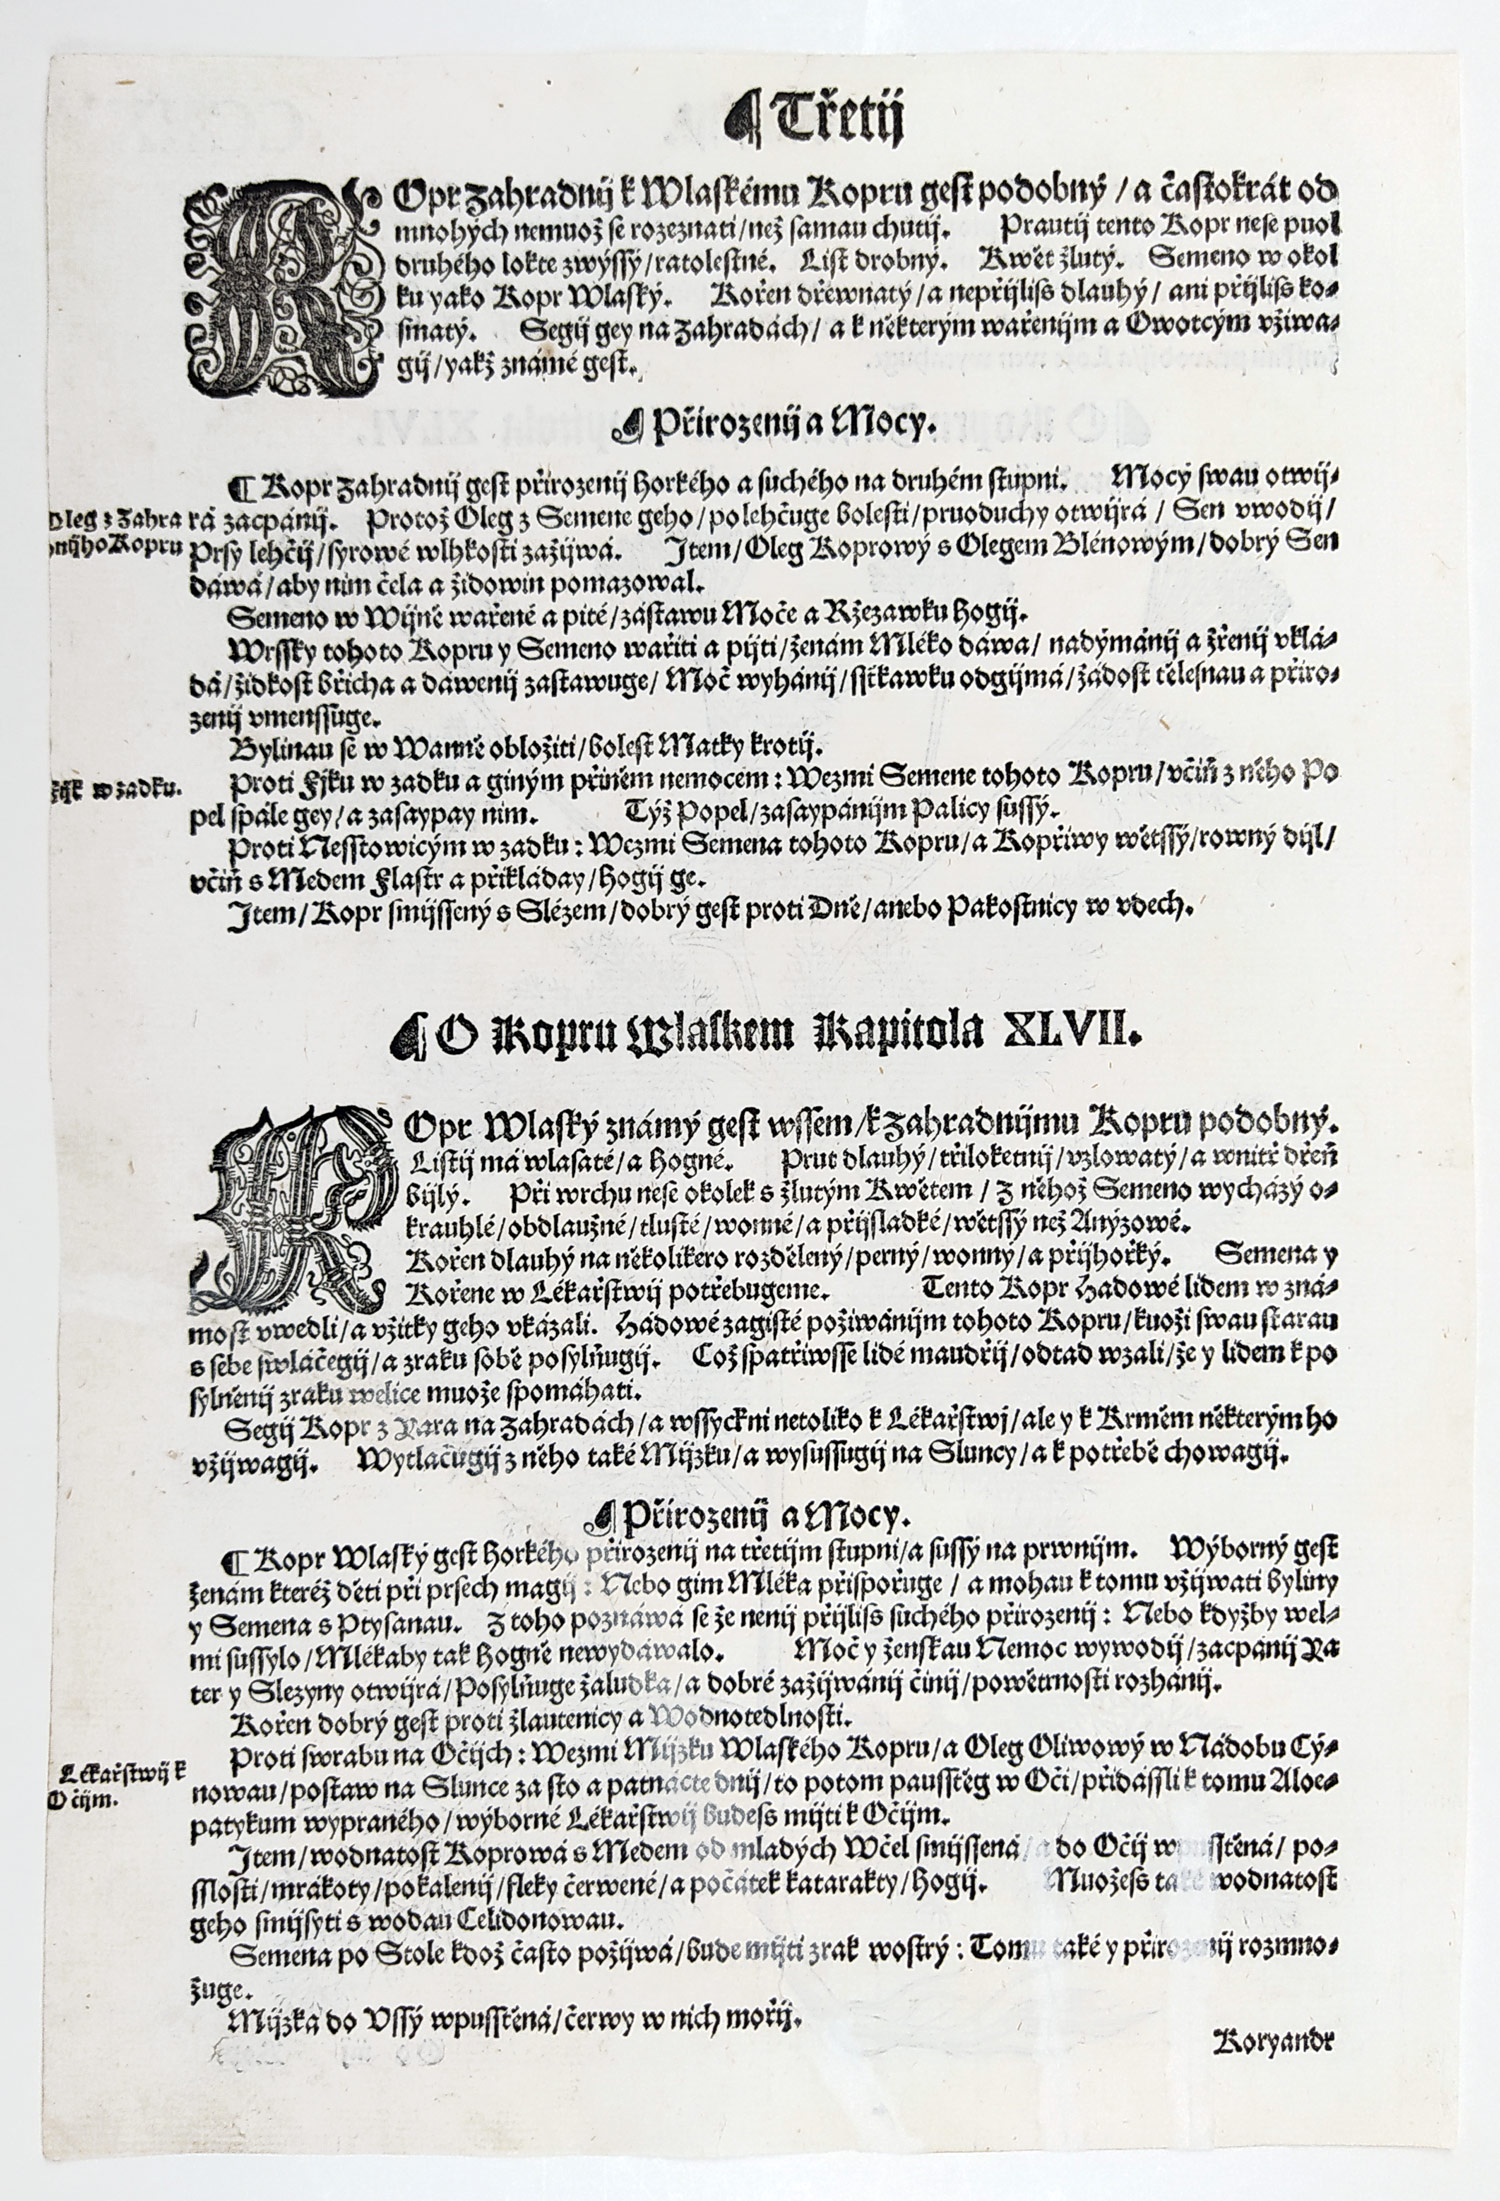 Třetij
KOpr Zahradnij k Wlaſkému Kopru geſt podobný / a častokrát od
mnohých nemuož ſe rozeznati / než ſamau chutij. Prautij tento Kopr neſe puol
druhého lokte zwýſſý / ratoleſtné. Liſt drobny. Kwět žlutý. Semeno w okol
ku yako Kopr Wlaſký. Kořen dřewnatý / a nepřijliſs dlauhý / ani přijliſs ko⸗
ſmatý. Segij gey na Zahradách / a k některým wařenijm a Owotcým vžiwa⸗
gij / yakž známé geſt.
Přirozenij a Mocy.
¶ Kopr Zahradnij geſt přirozenij horkého a ſuchého na druhém ſtupni. Mocý ſwau otwij⸗
rá zacpánij. Protož Oleg z Semene geho / polehčuge boleſti / pruoduchy otwijrá / Sen vwodij /
Oleg z Zahra
dnijho Kopru
Prſy lehčij / ſyrowé wlhkoſti zažijwá. Item / Oleg Koprowý s Olegem Blénowým / dobrý Sen
dáwá / aby nim čela a židowin pomazowal.
Semeno w Wijně wařené a pité / záſtawu Moče a Ržezawku hogij.
Wrſſky tohoto Kopru y Semeno wařiti a pijti / ženám Mléko dáwa / nadýmánij a žřenij vklá⸗
dá / židkoſt břicha a dáwenij zaſtawuge / Moč wyhánij / ſſtkawku odgijmá / žádoſt tělesnau a přiro⸗
zenij vmenſſuge.
Bylinau ſe w Wanně obložiti / boleſt Matky krotij.
Fijk w zadku.
Proti Fijku w zadku a giným přiněm nemocem : Wezmi Semene tohoto Kopru / včiň z něho Po
pel ſpále gey / a zaſaypay nim. Týž Popel / zaſaypánijm Palicy ſuſſý.
Proti Neſſtowicým w zadku : Wezmi Semena tohoto Kopru / a Kopřiwy wětſſý / rowný dijl /
včiň s Medem Flaſtr a přikláday / hogij ge.
Item / Kopr ſmijſſený s Slézem / dobrý geſt proti Dně / anebo Pakoſtnicy w vdech.
O Kopru Wlaſkem Kapitola XLVII.
KOpr Wlaſký známý geſt wſſem / k Zahradnijmu Kopru podobný.
Liſtij má wlaſaté / a hogné. Prut dlauhý / třiloketnij / vzlowatý / a wnitř dřeň
bijlý. Při wrchu neſe okolek s žlutým Kwětem / z něhož Semeno wycházý o⸗
krauhlé / obdlaužné / tluſté / wonné / a přijſladké / wětſſý než Anýzowé.
Kořen dlauhý na několikero rozdělený / perný / wonný / a přijhořký. Semena y
Kořene w Lékařſtwij potřebugeme. Tento Kopr Hadowé lidem w zná⸗
moſt vwedli / a vžitky geho vkázali. Hádowé zagiſté požiwánijm tohoto Kopru / kuoži ſwau ſtarau
s ſebe ſwláčegij / a zraku ſobě poſylňugij. Což ſpatřiwſſe lidé maudřij / odtad wzali / že y lidem k po
ſylněnij zraku welice muože ſpomáhati.
Segij Kopr z Yara na Zahradách / a wſſyckni netoliko k Lékařſtwj / ale y k Krměm některým ho
vžijwagij. Wytlačugij z něho také Mijzku / a wyſuſſugij na Sluncy / a k potřebě chowagij.
Přirozenij a Mocy.
¶ Kopr Wlaſký geſt horkého přirozenij na třetijm ſtupni / a ſuſſý na prwnijm. Wýborný geſt
ženám kteréž děti při prſech magij : Nebo gim Mléka přiſpořuge / a mohau k tomu vžijwati byliny
y Semena s Ptyſanau. Z toho poznáwá ſe že nenij přijliſs ſuchého přirozenij : Nebo kdyžby wel⸗
mi ſuſſylo / Mlékaby tak hogně newydáwalo. Moč y ženſkau Nemoc wywodij / zacpánij Ya
ter y Slezyny otwijrá / Poſylňuge žaludka / a dobré zažijwánij činij / powětrnoſti rozhánij.
Kořen dobrý geſt proti žlautenicy a Wodnotedlnoſti.
Lékařſtwij k
Očijm.
Proti ſwrabu na Očijch : Wezmi Mijzku Wlaſkého Kopru / a Oleg Oliwowý w Nádobu Cý⸗
nowau / poſtaw na Slunce za ſto a patnácte dnij / to potom pauſſtěg w Oči / přidáſſli k tomu Aloe⸗
patykum wypraného / wýborné Lékařſtwij budeſs mijti k Očijm.
Item / wodnatoſt Koprowá s Medem od mladých Wčel ſmijſſená / a do Očij wpuſſtěná / po⸗
ſſloſti / mrákoty / pokalenij / fleky čerwené / a počátek katarakty / hogij. Muožeſs také wodnatoſt
geho ſmijſyti s wodau Celidonowau.
Semena po Stole kdož často požijwá / bude mijti zrak woſtrý : Tomu také y přirozenij rozmno⸗
žuge.
Mijzka do Vſſý wpuſſtěná / čerwy w nich mořij.
Koryandr